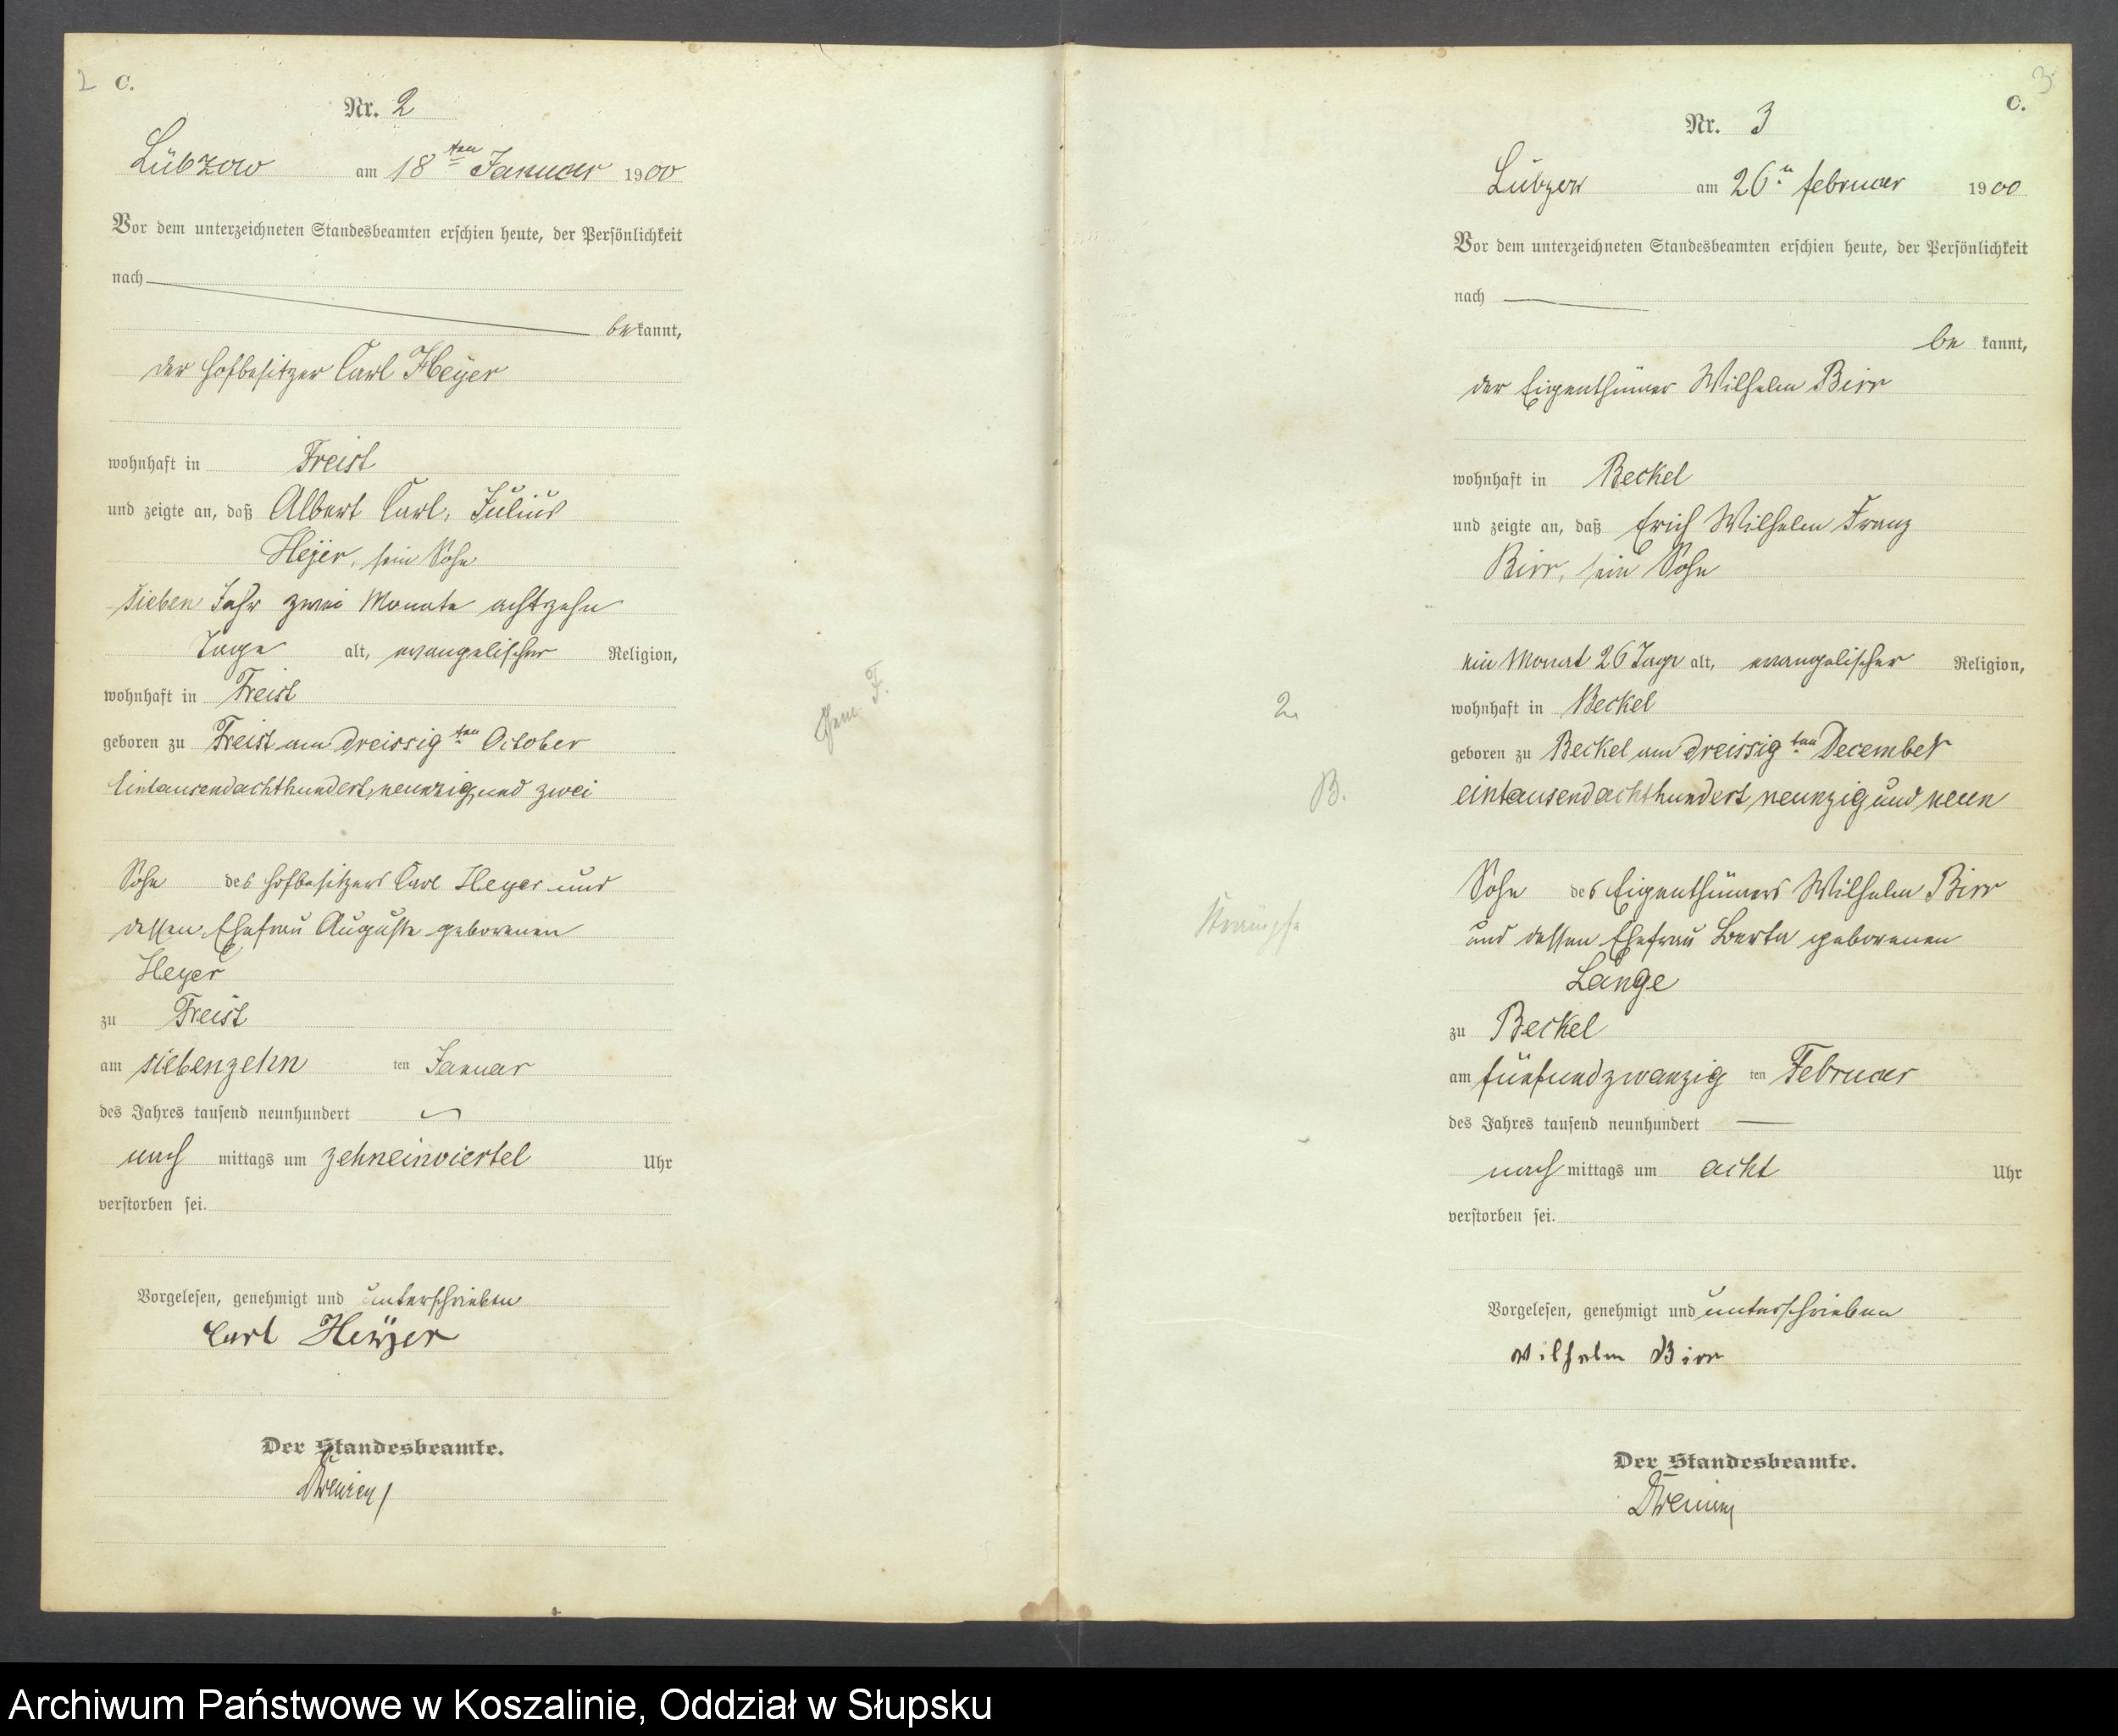 2 C.
Nr. 2
Lübzow am 18ten Januar 1900
Vor dem unterzeichneten Standesbeamten erschien heute, der Persönlichkeit
nach
bekannt,
der Hofbesitzer Carl Heyer
wohnhaft in Freist
und zeigte an, daß Albert Carl, Julius
Heyer, sein Sohn
sieben Jahr zwei Monate achtzehn
Tage alt, evangelischer Religion,
wohnhaft in Freist
geboren zu Freist am dreissigten October
Eintausendachthundert, neunzig und zwei
Sohn des Hofbesitzers Carl Heyer und
dessen Ehefrau Auguste geborenen
Heyer
zu Freist
am siebenzehn ten Januar
des Jahres tausend neunhundert
nach mittags um zehneinviertel Uhr
verstorben sei.
Vorgelesen, genehmigt und unterschrieben
Carl Heÿer
Der Standesbeamte.
F.
3
C.
Nr. 3
Lübzow am 26n Februar 1900
Vor dem unterzeichneten Standesbeamten erschien heute, der Persönlichkeit
nach
be kannt,
der Eigenthümer Wilhelm Birr
wohnhaft in Beckel
und zeigte an, daß Erich Wilhelm Franz
Birr, sein Sohn
ein Monat 26 Tage alt, evangelischer Religion,
2.
wohnhaft in Beckel
geboren zu Beckel am dreissigten December
B.
eintausendachthundert, neunzig und neun
Sohn des Eigenthümers Wilhelm Birr
Krämpfe
und dessen Ehefrau Berta geborenen
Lange
zu Beckel
am fünfundzwanzig ten Februar
des Jahres tausend neunhundert
nach mittags um acht Uhr
verstorben sei.
Vorgelesen, genehmigt und unterschrieben
Wilhelm Birr
Der Standesbeamte.
Archiwum Państwowe w Koszalinie, Oddział w Słupsku